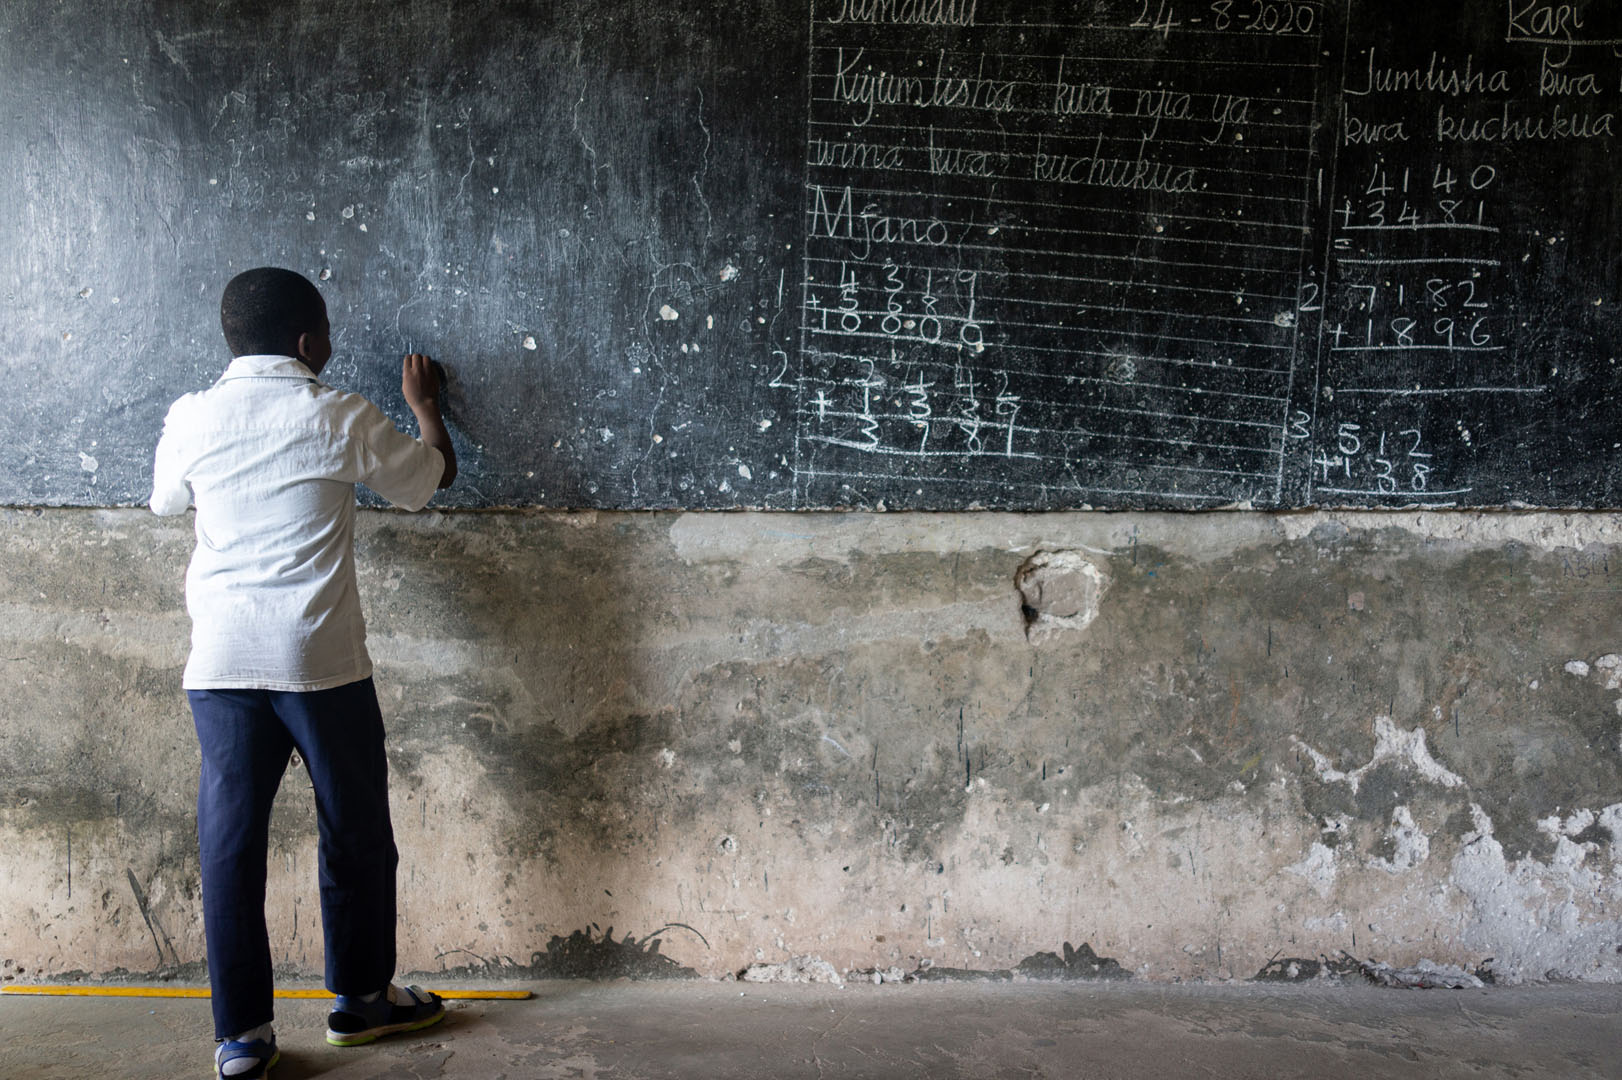 Jumatatu 24-8-2020
Kujumlisha kwa njia ya
wima kwa kuchukua.
Mfano
1 4 3 1 9
+ 5 6 8 1
1 0 0 0 0
2 2 4 4 2
+ 1 3 3 9
3 7 8 1
Kazi
Jumlisha kwa
kwa kuchukua
1 4 1 4 0
+ 3 4 8 1
=
2 7 1 8 2
+ 1 8 9 6
3 5 1 2
+ 1 3 8